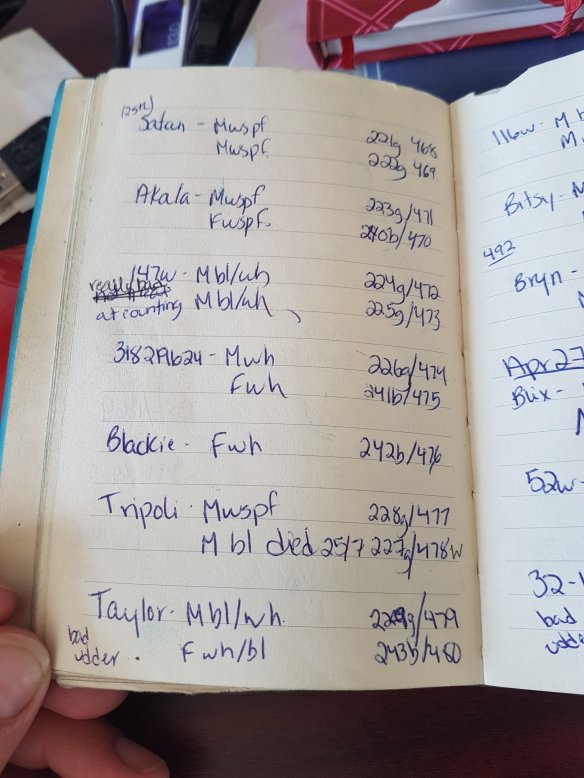 (25th)
Satan - Mwspf 221g 468
Mwspf. 222g 469
Akala - Mwspf 223g/471
Fwspf. 240b/470
147w - M bl/wh 224g/472
really bad
at counting M bl/wh 225g/473
318219b24 - Mwh 226g/474
Fwh 241b/475
Blackie - Fwh 242b/476
Tripoli - Mwspf 228g/477
M bl died 25/7 227g/478w
Taylor - M bl/wh. 229g/479
bad
udder. Fwh/bl 243b/480
116w - M b
M
Bitsy - M
492
Bryn -
Apr 27
Blix -
52w -
32 -
bad
udde